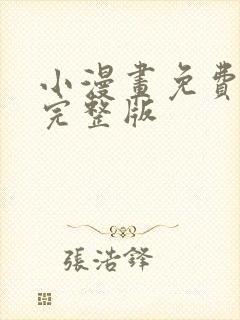 小漫畫免費
完整版
張浩鋒